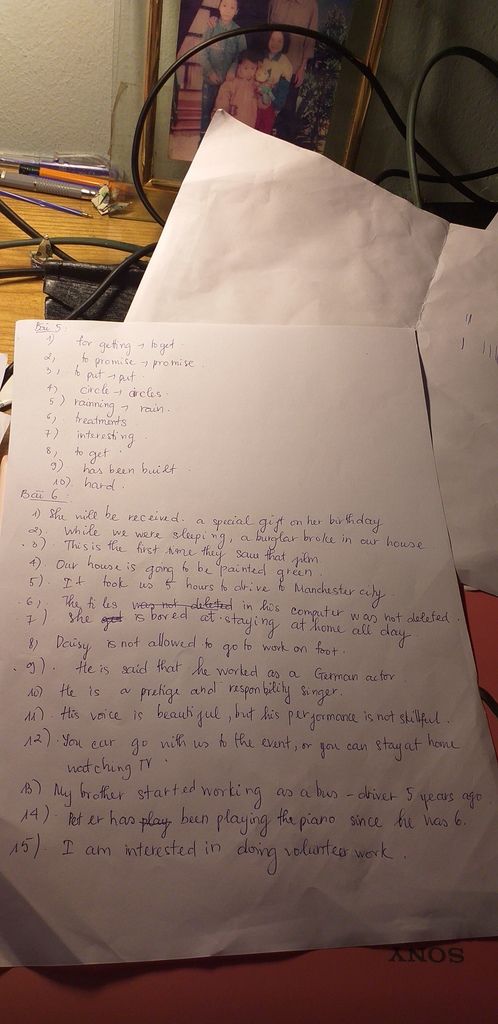 Bài 5:
1) for getting → to get.
2, to promise → promise.
3, to put → put.
4, circle → circles.
5) rainning → rain.
6, treatments
7) interesting.
8, to get.
9) has been built.
10) hard.
Bài 6:
1) She will be received. a special gift on her birthday
2) While we were sleeping, a burglar broke in our house
3). This is the first time they saw that film
4) Our house is going to be painted green.
5). It took us 5 hours to drive to Manchester city.
6, The files was not deleted in his computer was not deleted.
7) She is bored at staying at home all day
8) Daisy is not allowed to go to work on foot.
9). He is said that he worked as a German actor
10) He is a pretige and responbility singer.
11). His voice is beautiful, but his performance is not skillful.
12). You can go with us to the event, or you can stay at home
watching TV.
13) My brother started working as a bus-driver 5 years ago
14). Peter has play been playing the piano since he was 6.
15). I am interested in doing volunteer work.
SONY